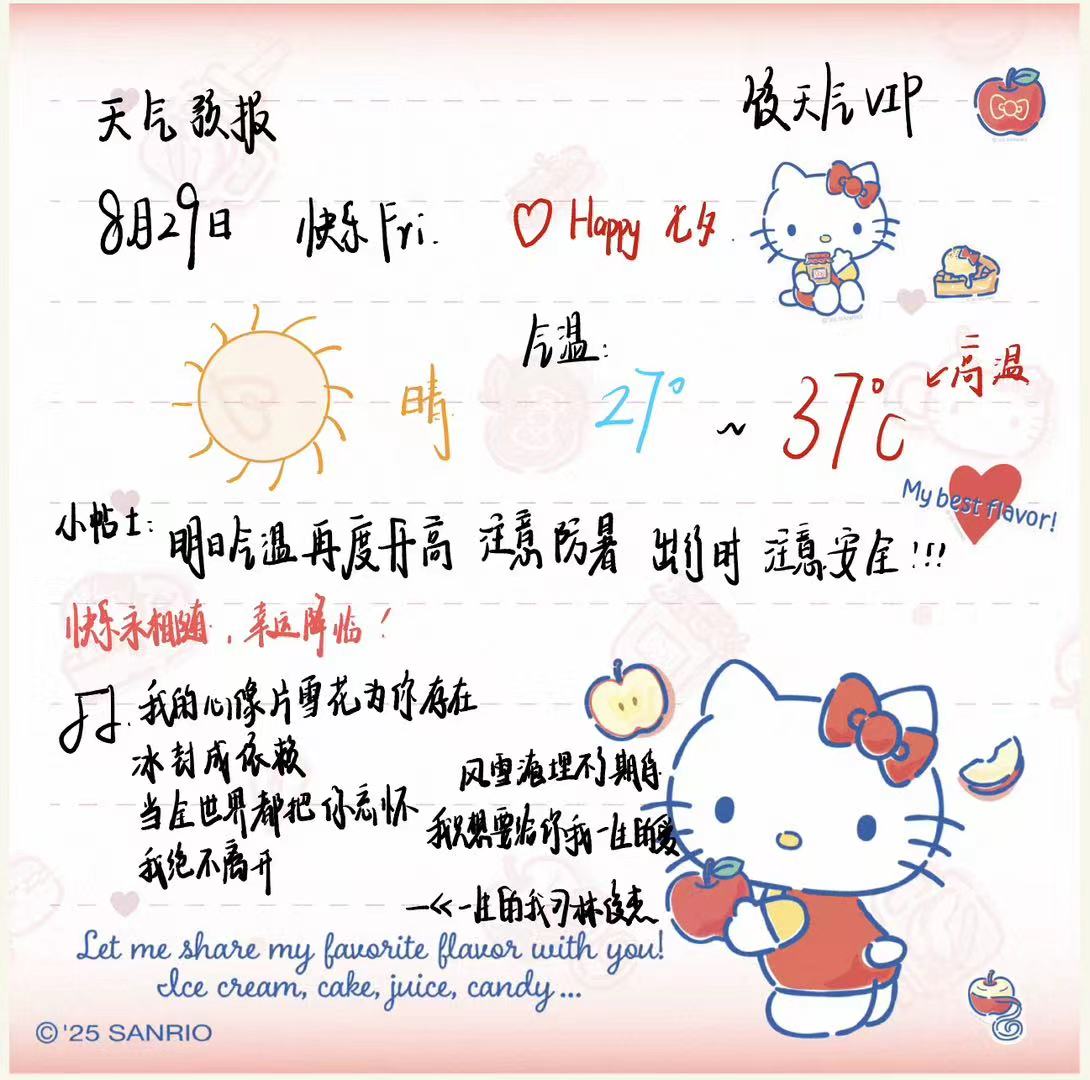 天气预报
俊天气VIP
8月29日 快乐Fri. ♡ Happy 七夕.
气温:
晴 27° ~ 37℃ ↙高温
My best flavor!
小帖士: 明日气温再度升高 注意防暑 出行时 注意安全!!!
快乐永相随,幸运降临!
我的心像片雪花为你存在
冰封成依赖
当全世界都把你忘怀
我绝不离开
风雪掩埋不了期待
我只想要给你我一生的爱
—《一生的我》林俊杰
Let me share my favorite flavor with you!
Ice cream, cake, juice, candy...
© '25 SANRIO